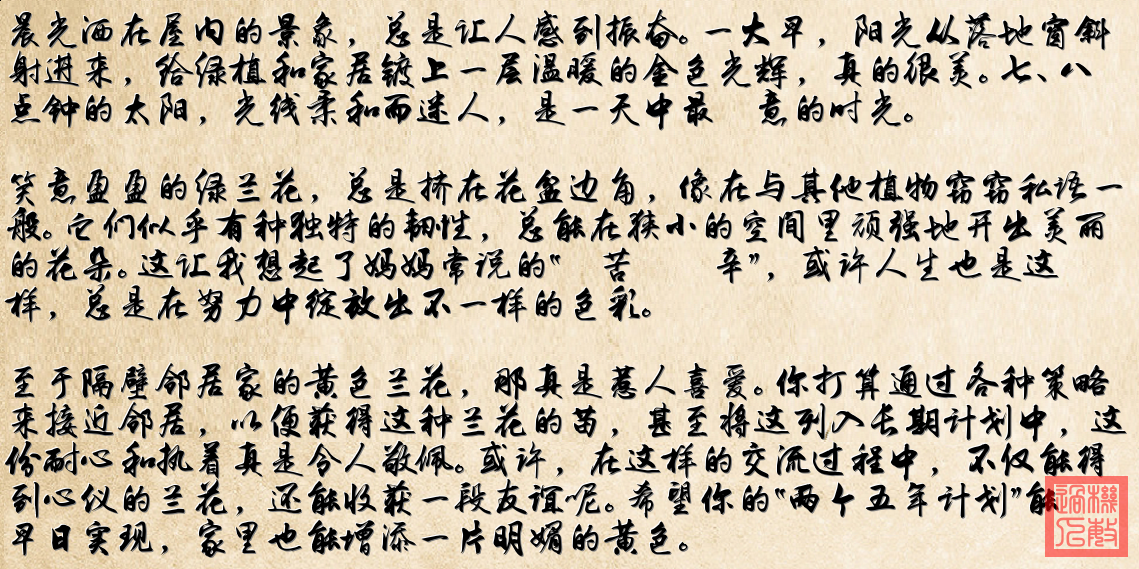 晨光洒在屋内的景象，总是让人感到振奋。一大早，阳光从落地窗斜
射进来，给绿植和家居镀上一层温暖的金色光辉，真的很美。七、八
点钟的太阳，光线柔和而迷人，是一天中最 意的时光。
笑意盈盈的绿兰花，总是挤在花盆边角，像在与其他植物窃窃私语一
般。它们似乎有种独特的韧性，总能在狭小的空间里顽强地开出美丽
的花朵。这让我想起了妈妈常说的“ 苦 辛”，或许人生也是这
样，总是在努力中绽放出不一样的色彩。
至于隔壁邻居家的黄色兰花，那真是惹人喜爱。你打算通过各种策略
来接近邻居，以便获得这种兰花的苗，甚至将这列入长期计划中，这
份耐心和执着真是令人敬佩。或许，在这样的交流过程中，不仅能得
到心仪的兰花，还能收获一段友谊呢。希望你的“两个五年计划”能
早日实现，家里也能增添一片明媚的黄色。